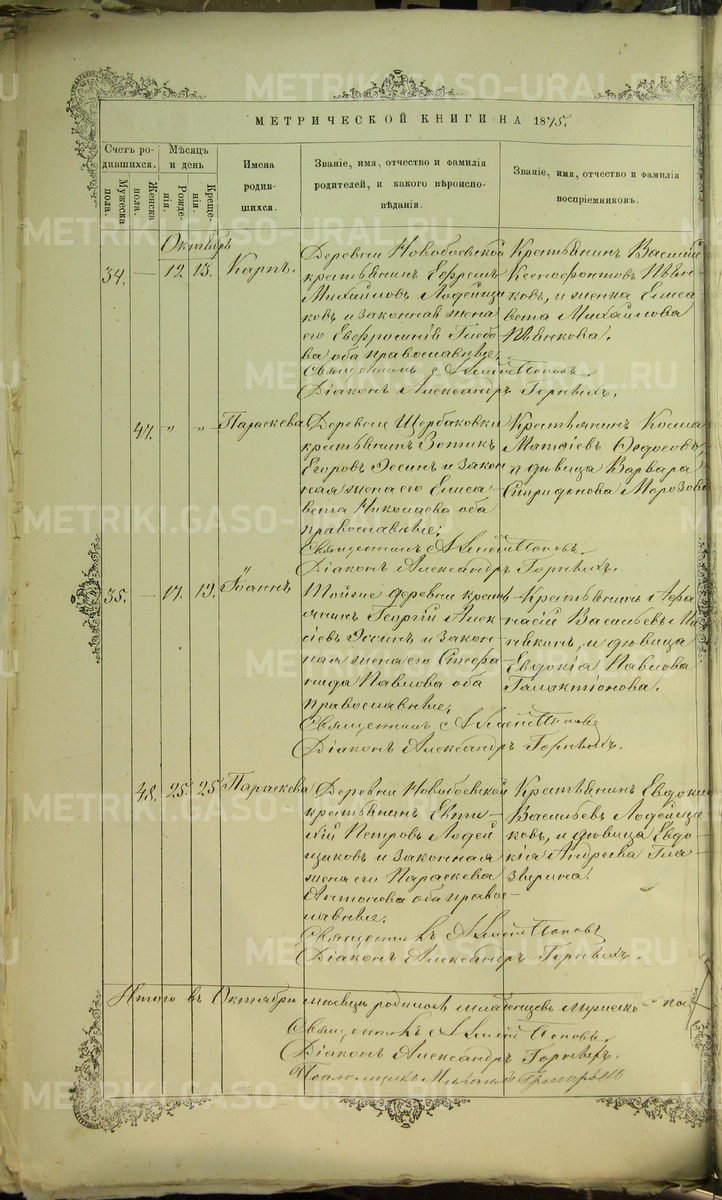 METRIKI.GASO-URAL.RU
МЕТРИЧЕСКОЙ КНИГИ НА 1875.
Счетъ родившихся.
Мужеска пола.
Женска пола.
Мѣсяцъ и день
Рожденія.
Крещенія.
Имена родившихся.
Званіе, имя, отчество и фамилія родителей, и какого вѣроисповѣданія.
Званіе, имя, отчество и фамилія воспріемниковъ.
Октябрь
34. — 12. 13. Карпъ.
Деревни Новобоевской
крестьянинъ Ефремъ
Михайловъ Лодейщи
ковъ и законная жена
его Евфросинія Глебо
ва оба православные;
Священникъ Попов
Діаконъ Александръ Горныхъ.
Крестьянинъ Василій
Ксенофонтовъ Пѣвн
ковъ, и жена Елиса
вета Михайлова
Пѣвнкова.
47. " " Параскева
Деревни Щербаковки
крестьянинъ Зотикъ
Егоровъ Эссинъ и закон
ная жена его Елиса
вета Николаева оба
православные;
Священникъ Поповъ.
Діаконъ Александръ Горныхъ.
Крестьянинъ Косма
Матфіевъ Федосовъ,
и дѣвица Варвара
Спиридонова Морозова
35. — 17. 19. Іоаннъ
Тойже деревни крест
янинъ Георгій Алек
сіевъ Эссинъ и закон
ная жена его Стефа
нида Павлова оба
православные;
Священникъ Поповъ
Діаконъ Александръ Горныхъ.
Крестьянинъ Афа
насій Васильевъ
и дѣвица
Евдокія Павлова
Галактіонова.
48. 25. 25. Параскева
Деревни Новобоевской
крестьянинъ Евти
хій Петровъ Лодей
щиковъ и законная
жена его Параскева
Антонова оба право
славные;
Священникъ Поповъ
Діаконъ Александръ Горныхъ.
Крестьянинъ Евдоки
Васильевъ Лодейще
ковъ, и дѣвица Евдо
кія Андреева Гла
зырина.
Итого въ Октябрѣ мѣсяцѣ родилось младенцевъ мужеска пола
Священникъ Поповъ.
Діаконъ Александръ Горныхъ.
Псаломщикъ Михаилъ Григорьевъ